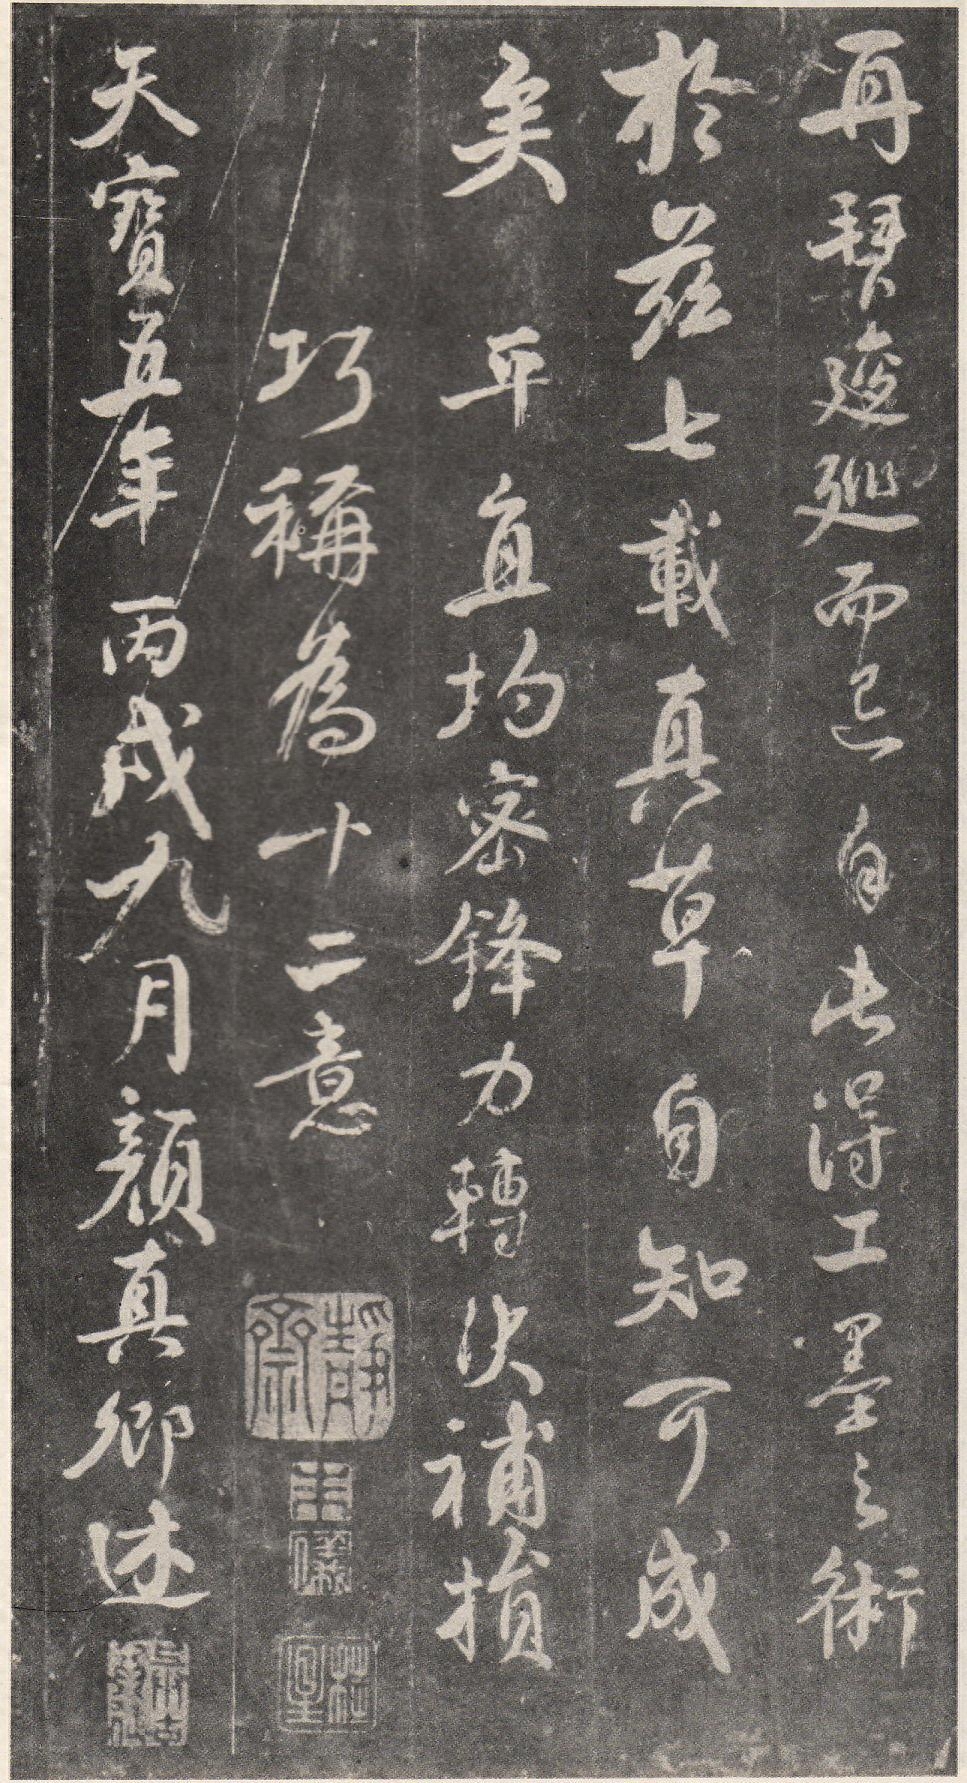 再拜逡巡而已自此得工墨之術
於茲七載真草自知可成
矣 平直均密鋒力轉決補損
巧稱為十二意
靜齋
天寶五年丙戌九月顏真卿述